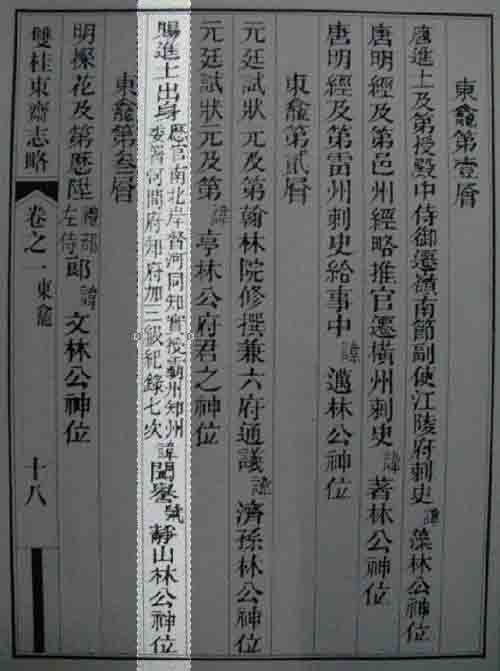 東龕第壹層
唐進士及第授殿中侍御遷嶺南節副使江陵府刺史諱藻林公神位
唐明經及第邑州經略推官遷橫州刺史諱著林公神位
唐明經及第雷州刺史給事中諱邁林公神位
東龕第貳層
元廷試狀元及第翰林院修撰兼六府通議諱濟孫林公神位
元廷試狀元及第諱亭林公府君之神位
賜進士出身歷官南北岸督河同知實授霸州知州委署河間府知府加三級紀錄七次諱聞譽號靜山林公神位
東龕第叁層
明探花及第歷陞禮部左侍郎諱文林公神位
雙桂東齋志略
卷之一東龕
十八